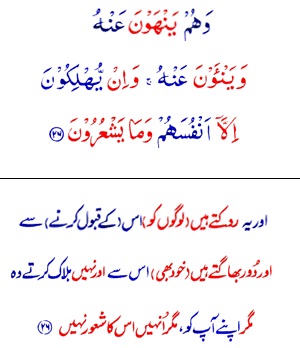 وَهُمْ يَنْهَوْنَ عَنْهُ
وَيَنْـَٔوْنَ عَنْهُ ۚ وَاِنْ يُّهْلِكُوْنَ
اِلَّآ اَنْفُسَهُمْ وَمَا يَشْعُرُوْنَ ﴿۲۶﴾
اور یہ روکتے ہیں (لوگوں کو) اس (کے قبول کرنے) سے
اور دُور بھاگتے ہیں (خود بھی) اس سے اور نہیں ہلاک کرتے وہ
مگر اپنے آپ کو، مگر اُنہیں اس کا شعور نہیں ﴿۲۶﴾